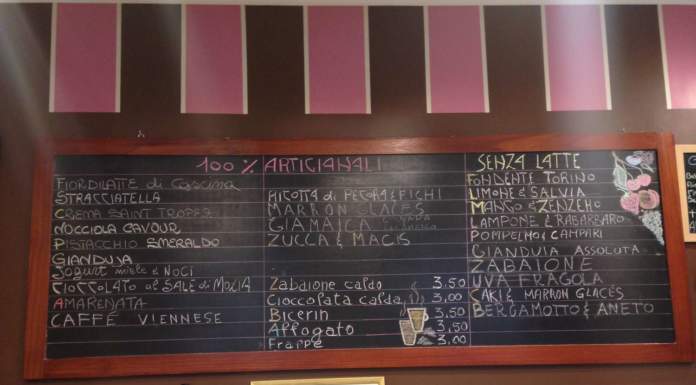 100 % ARTIGIANALI
FIORDILATTE di Cascina
STRACCIATELLA
CREMA SAINT TROPEZ
NOCCIOLA CAVOUR
PISTACCHIO SMERALDO
GIANDUJA
Jogurt miele & NOCI
CIOCCOLATO al SALE di MOZIA
AMARENATA
CAFFÉ VIENNESE
RICOTTA di PECORA & FICHI
MARRON GLACÉS
GIAMAICA
ZUCCA & MACIS
Zabaione caldo 3,50
Cioccolata calda 3,00
Bicerin 3,50
Affogato 3,50
Frappé 3,00
SENZA LATTE
FONDENTE TORINO
LIMONE & SALVIA
MANGO & ZENZERO
LAMPONE & RABARBARO
POMPELMO & CAMPARI
GIANDUIA ASSOLUTA
ZABAIONE
UVA FRAGOLA
SAKÉ & MARRON GLACÉS
BERGAMOTTO & ANETO